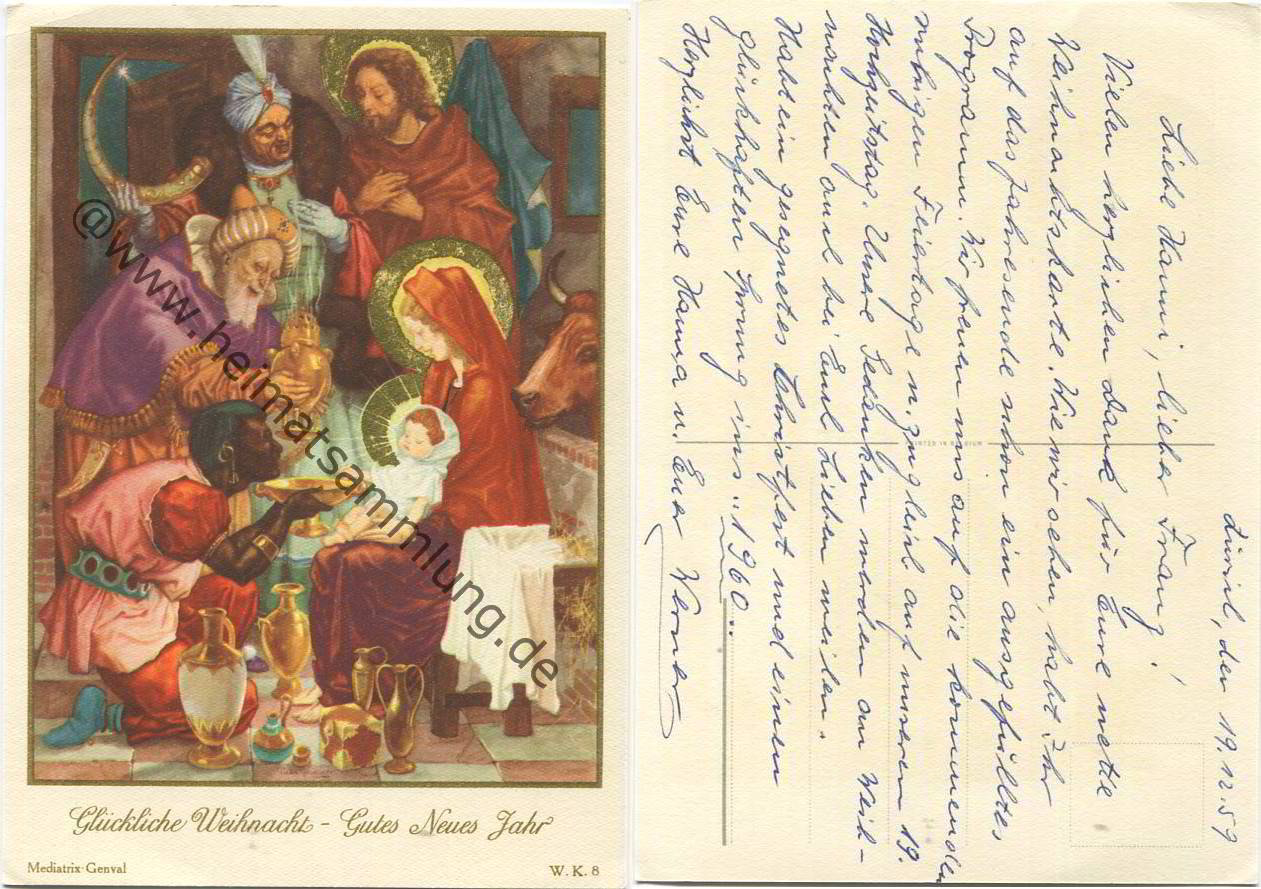 Glückliche Weihnacht - Gutes Neues Jahr
Mediatrix-Genval
W. K. 8
@www.heimatsammlung.de
Zürich, den 19.12.59
Liebe Hanni, lieber Franz!
Vielen herzlichen Dank für Eure nette
Weihnachtskarte. Wie wir sehen, habt Ihr
auf das Jahresende schon ein ausgefülltes
Programm. Wir freuen uns auf die kommenden
ruhigen Feiertage u. zugleich auf unseren 19.
Hochzeitstag. Unsere Gedanken werden an Weih-
nachten auch bei Euch Lieben weilen.
Habt ein gesegnetes Christfest und einen
glückhaften Sprung ins "1960".
Herzlichst Eure Hanna u. Euer Werner
PRINTED IN BELGIUM